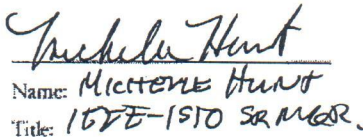 Michelle Hunt
Name: MICHELLE HUNT
Title: IEEE-ISTO SR MGR.